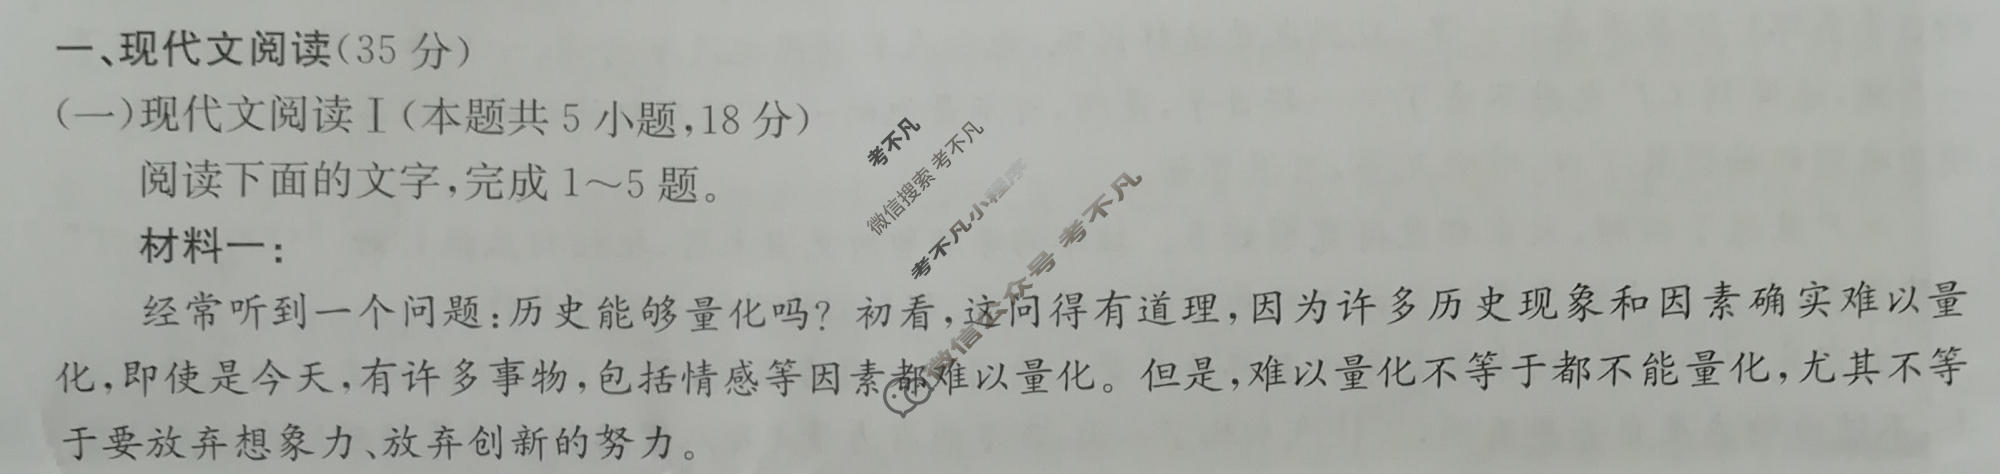 一、现代文阅读(35分)
(一)现代文阅读Ⅰ(本题共5小题,18分)
阅读下面的文字,完成1～5题。
材料一:
经常听到一个问题:历史能够量化吗? 初看,这问得有道理,因为许多历史现象和因素确实难以量
化,即使是今天,有许多事物,包括情感等因素都难以量化。但是,难以量化不等于都不能量化,尤其不等
于要放弃想象力、放弃创新的努力。
考不凡
微信搜索 考不凡
考不凡小程序
微信公众号 考不凡